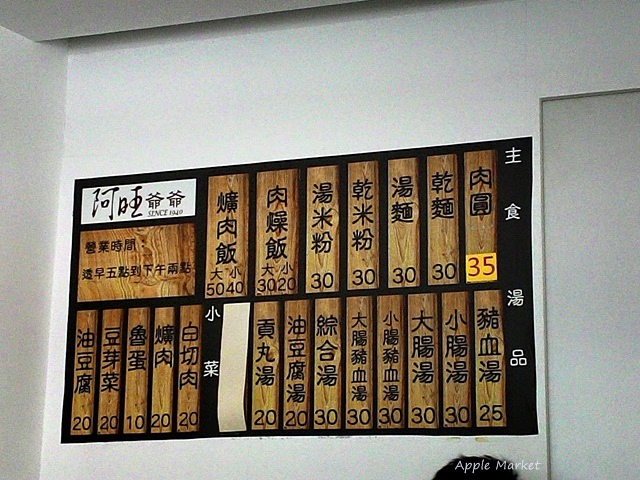 阿旺爺爺
SINCE 1940
營業時間
透早五點到下午兩點
主食
肉圓 35
乾麵 30
湯麵 30
乾米粉 30
湯米粉 30
肉燥飯 大30 小20
爌肉飯 大50 小40
湯品
豬血湯 25
小腸湯 30
大腸湯 30
小腸豬血湯 30
大腸豬血湯 30
綜合湯 30
油豆腐湯 20
貢丸湯 20
小菜
白切肉 20
爌肉 20
魯蛋 10
豆芽菜 20
油豆腐 20
Apple Market